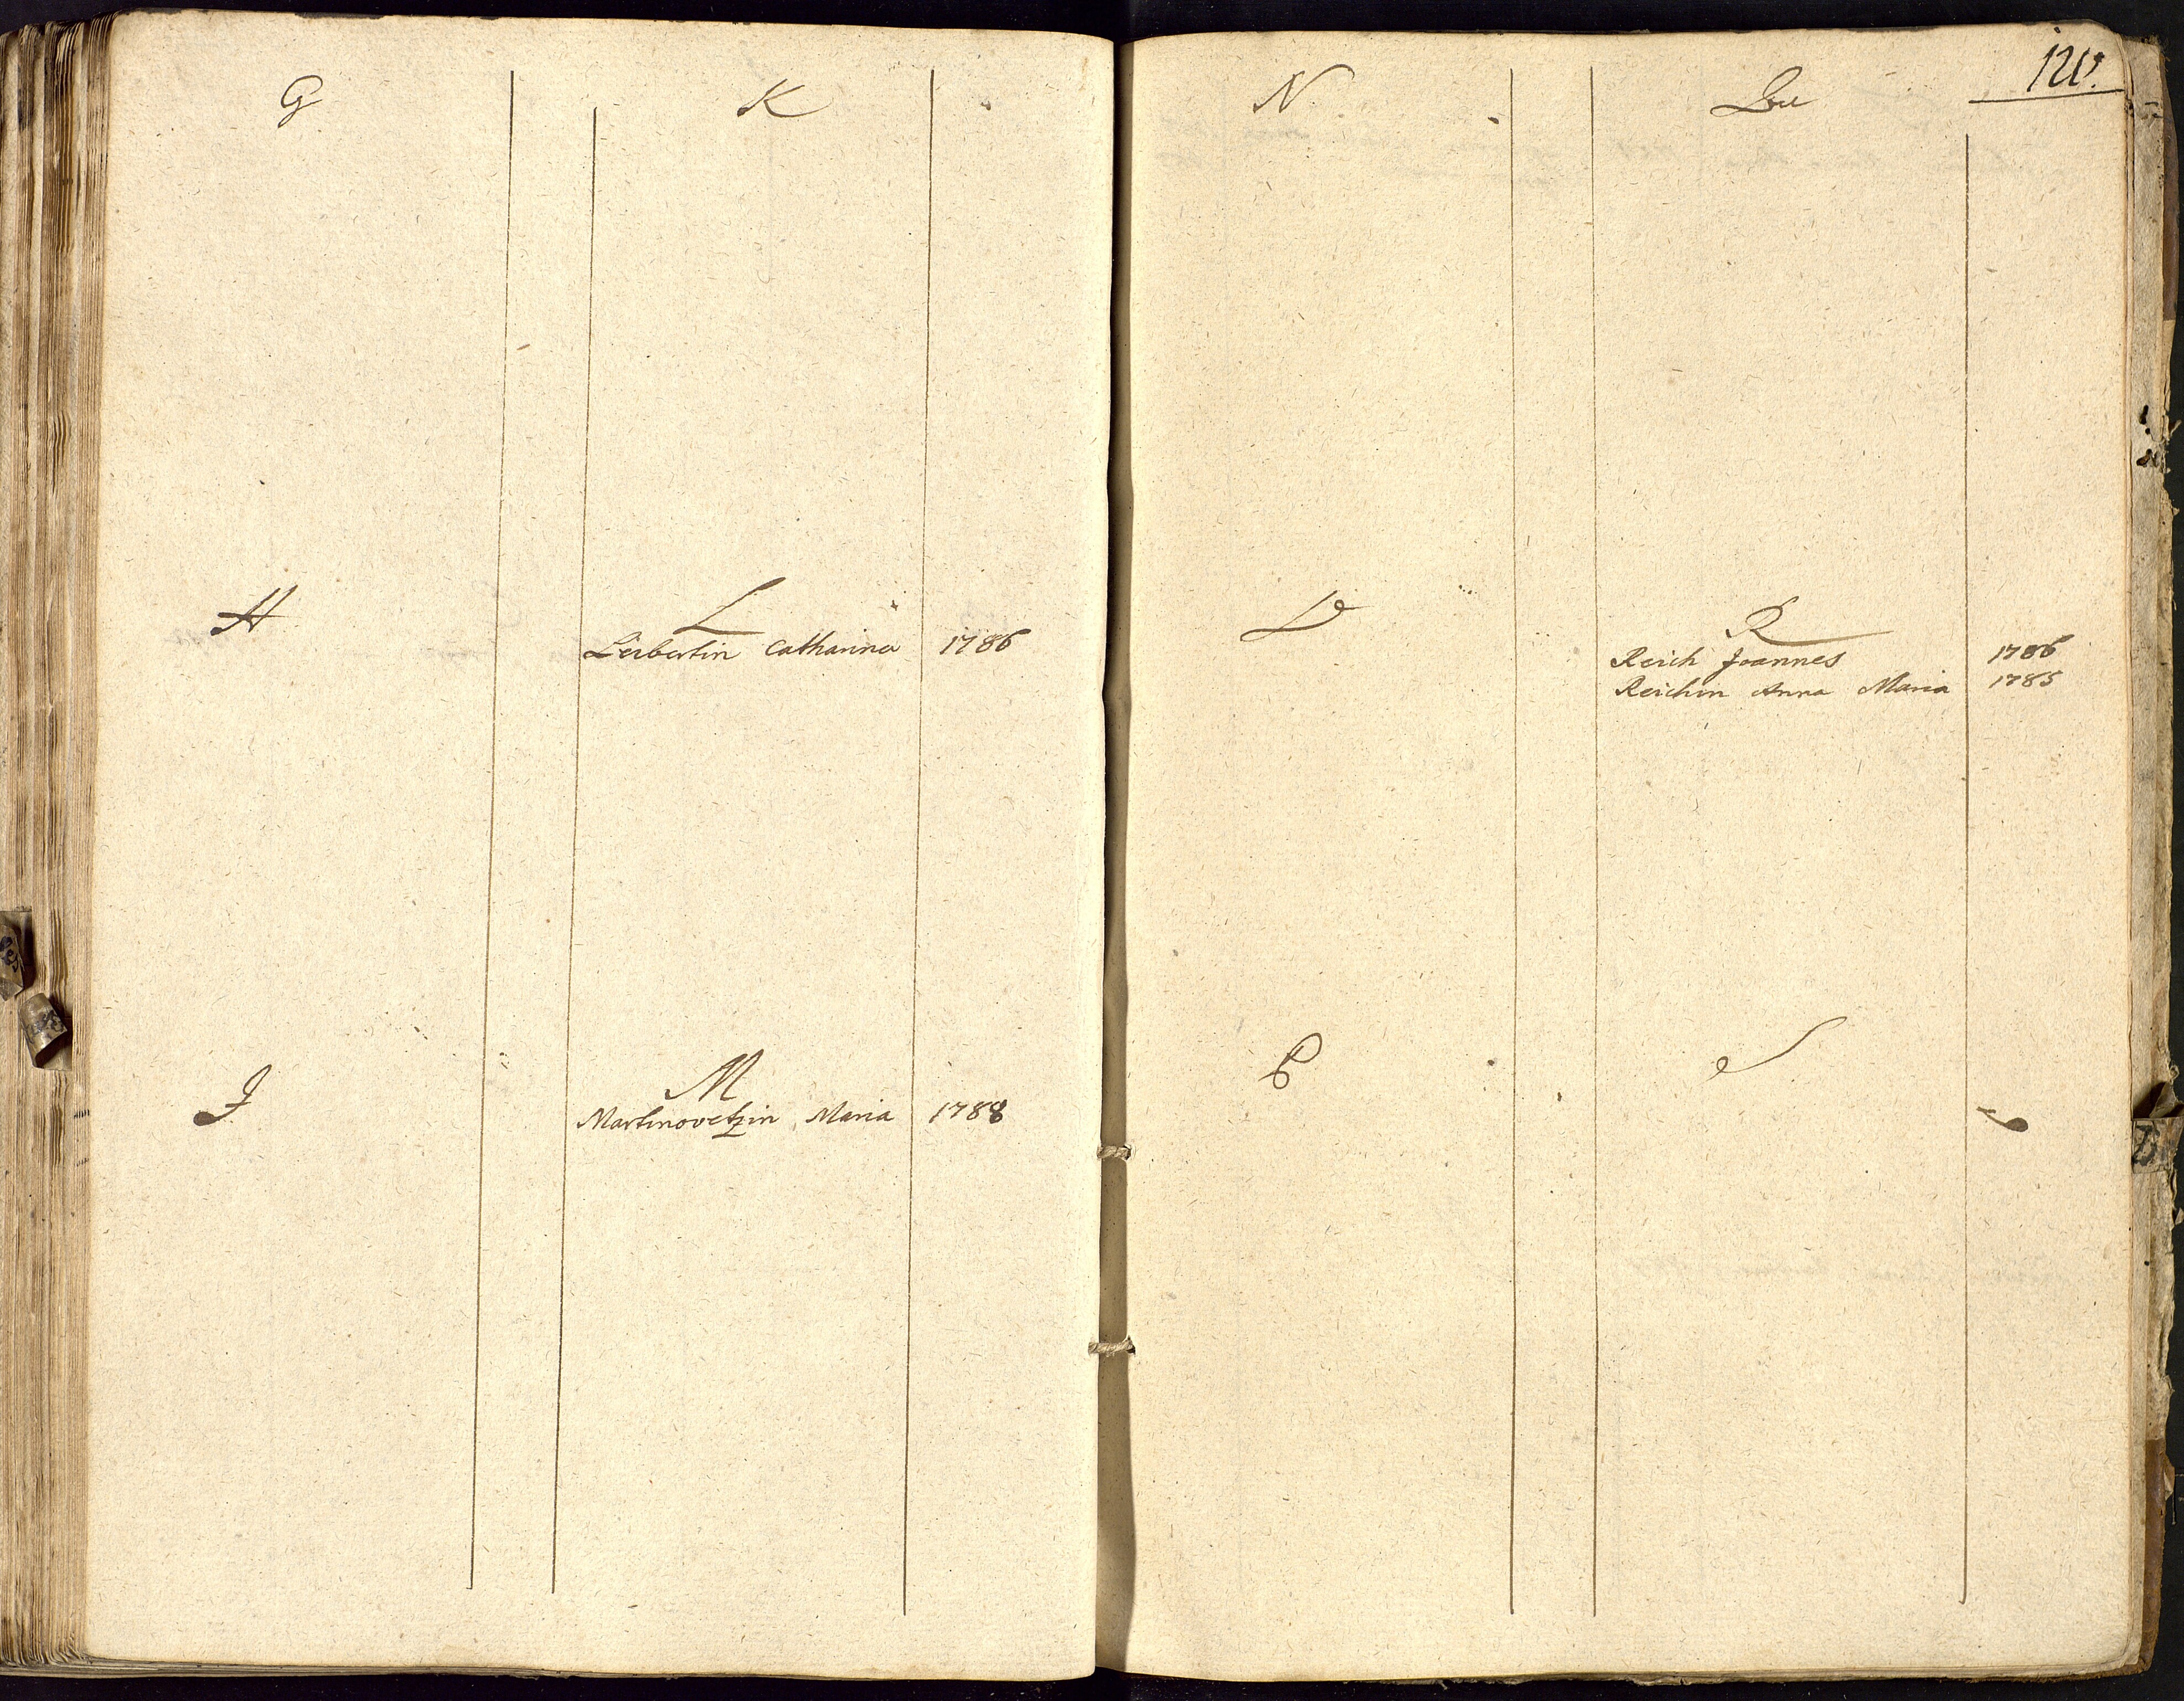 G
H
J
K
L
Leibertin Catharina 1786
M
Martinovetzin Maria 1788
120.
N.
O
P
Qu
R
Reich Joannes 1786
Reichin Anna Maria 1785
S